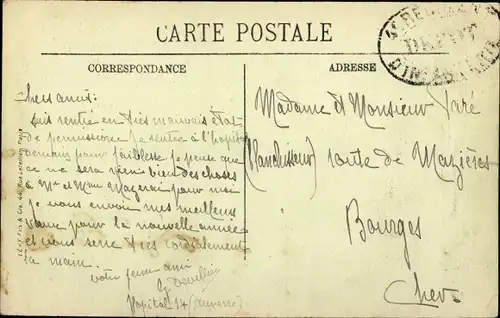 CARTE POSTALE
CORRESPONDANCE
ADRESSE
DEPOT
Chers amis:
suis rentré en très mauvais état
de permission je rentre à l'hopital
demain pour faiblesse je pense que
ce ne sera rien bien des choses
à Mr et Mme pour moi
je vous envoie mes meilleurs
vœux pour la nouvelle année
et vous serre très cordialement
la main.
votre jeune ami
Hopital 14 (Auxerre)
Madame et Monsieur Paré
(Blanchisseur) route de Mazières
Bourges
Cher